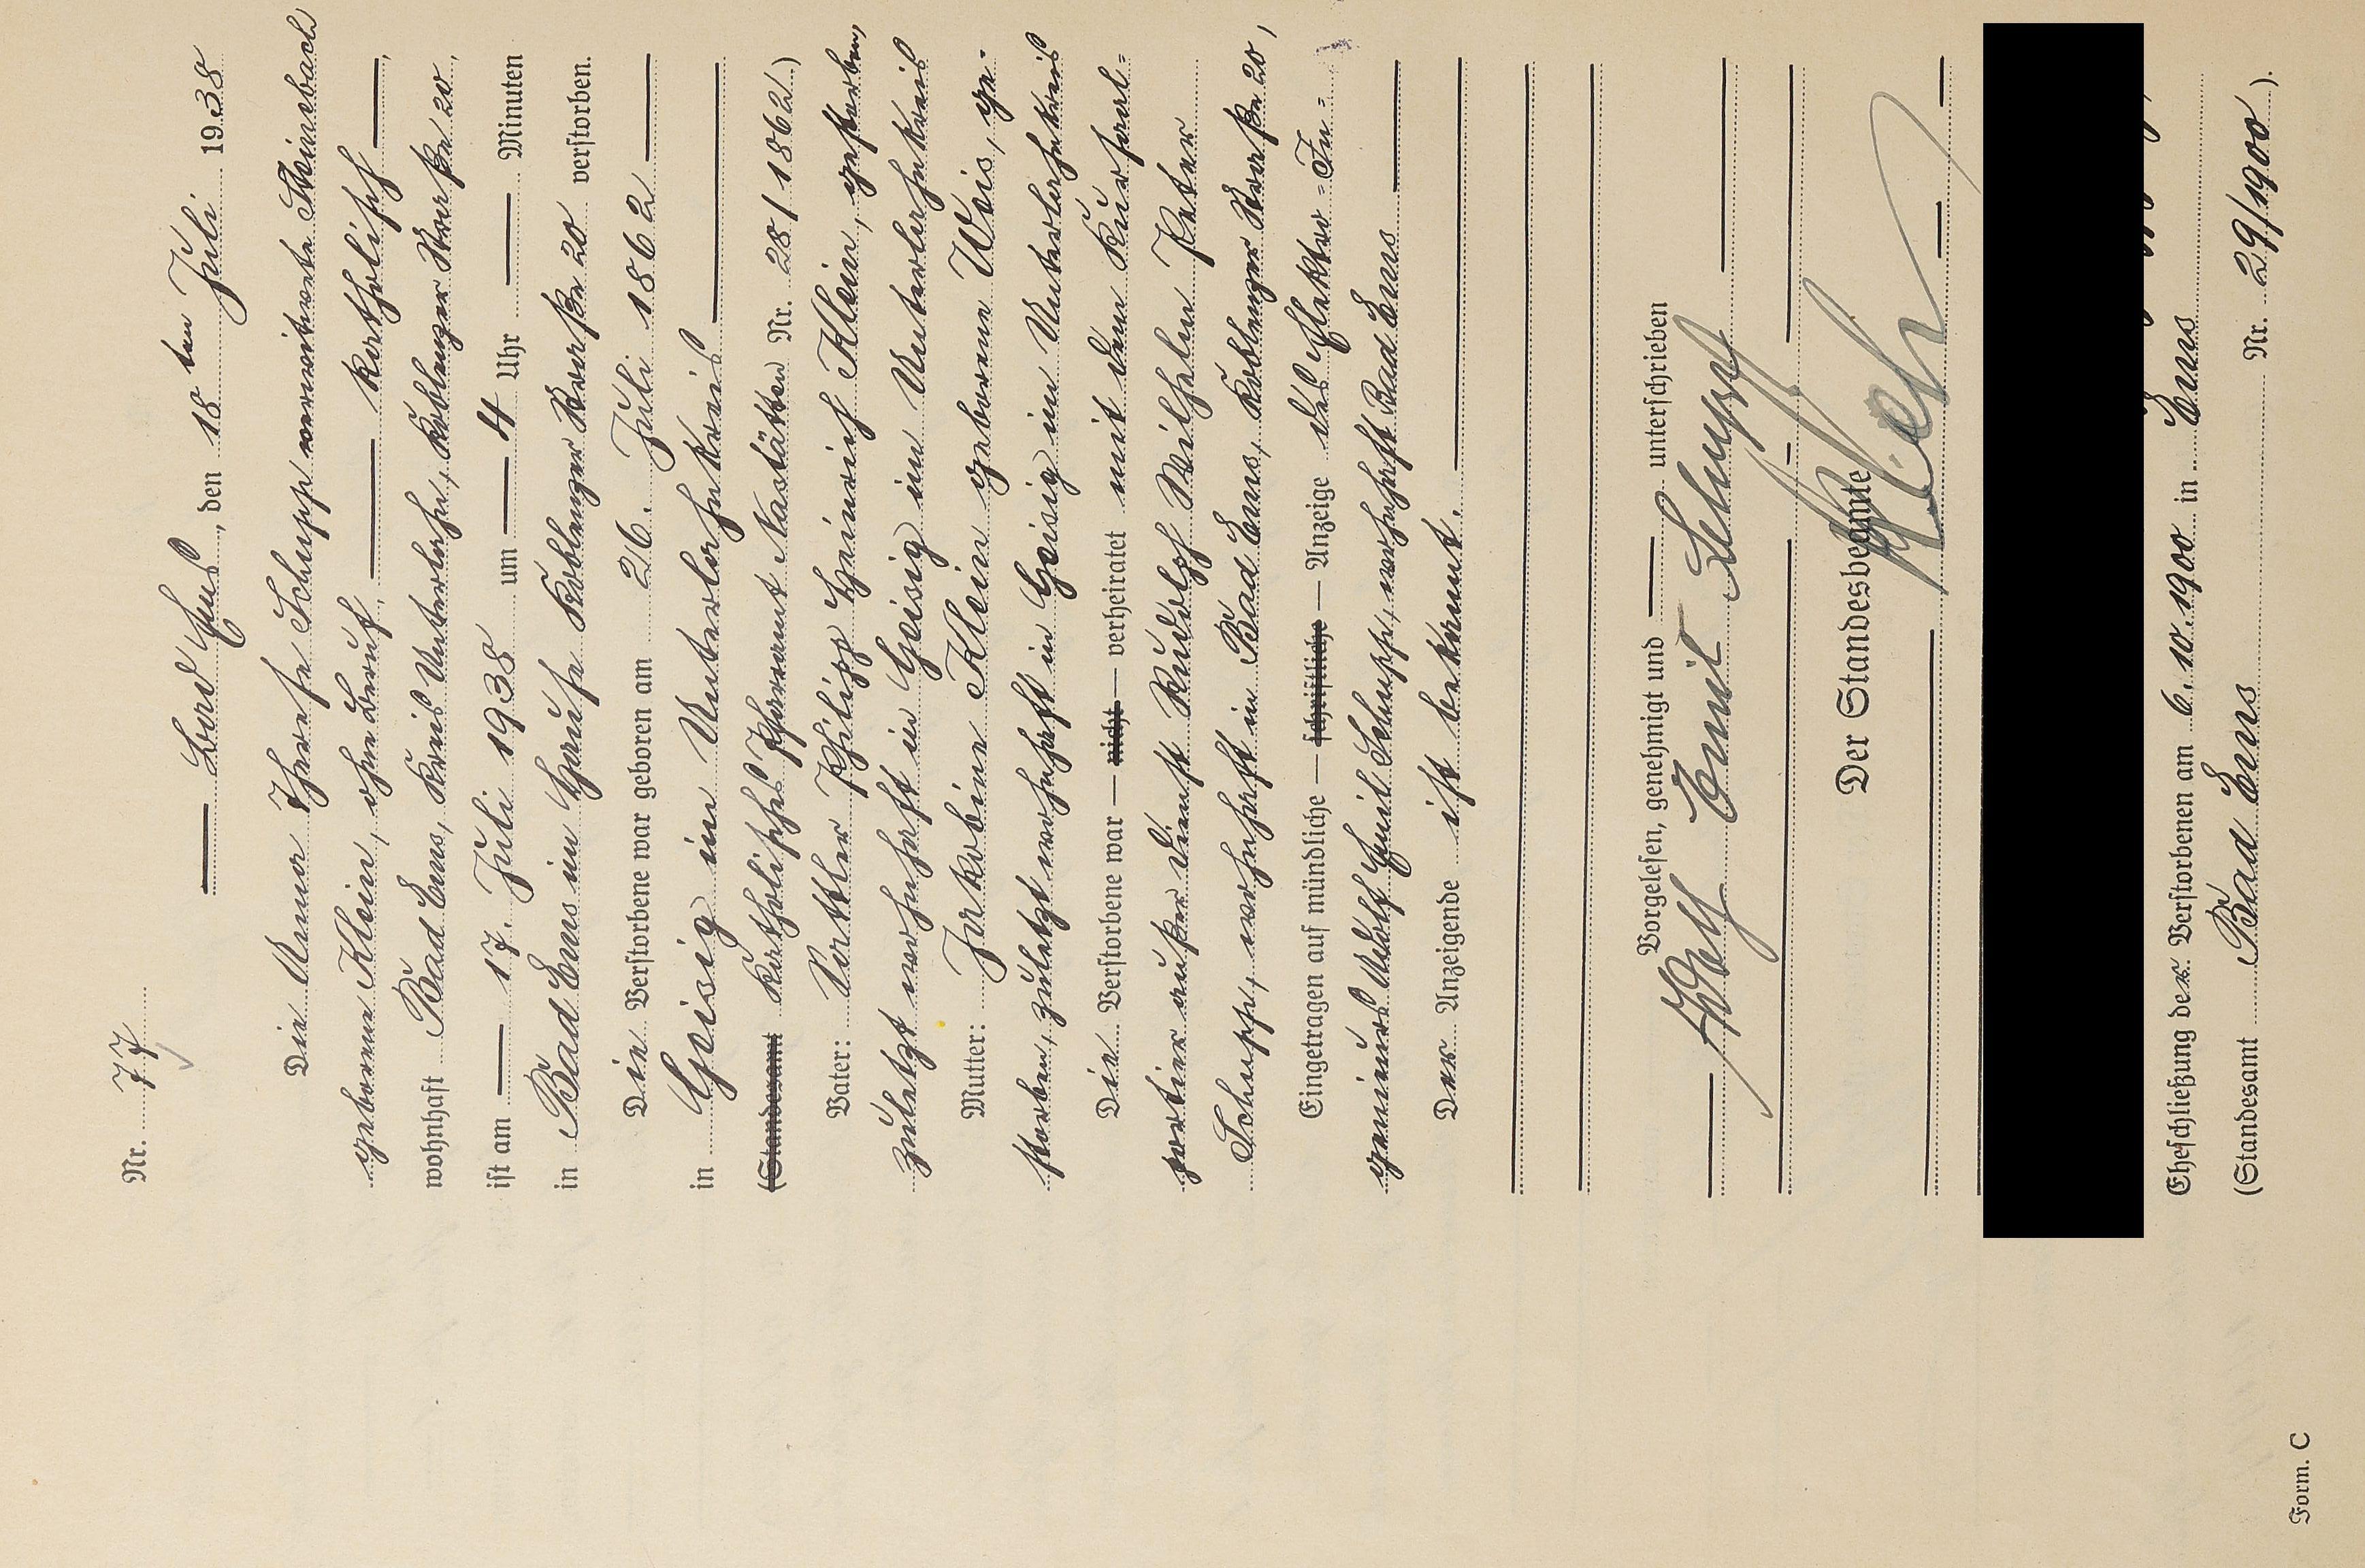 Nr. 77
Bad Ems, den 18ten Juli 1938
Die Anna Therese Schupp verwitwete Steinebach
geborene Klein, ohne Beruf, katholisch,
wohnhaft Bad Ems, Kreis Unterlahn, Koblenzer Straße 20,
ist am 17. Juli 1938 um 4 Uhr Minuten
in Bad Ems im Hause Koblenzer Straße 20 verstorben.
Die Verstorbene war geboren am 26. Juli 1862
in Geisig im Unterlahnkreis
(Standesamt Katholisches Pfarramt Nastätten Nr. 28/1862)
Vater: Philipp Heinrich Klein, gestorben,
zuletzt wohnhaft in Geisig im Unterlahnkreis
Mutter: Jakobine Klein geborene Weis, ge-
storben, zuletzt wohnhaft in Geisig im Unterlahnkreis
Die Verstorbene war — nicht — verheiratet mit dem
außer Dienst Rudolf Wilhelm Peter
Schupp, wohnhaft in Bad Ems, Koblenzer Straße 20,
Eingetragen auf mündliche — schriftliche — Anzeige des Elektro-In-
genieurs Adolf Emil Schupp, wohnhaft Bad Ems
Der Anzeigende ist bekannt.
Vorgelesen, genehmigt und unterschrieben
Adolf Emil Schupp
Der Standesbeamte
Eheschließung der Verstorbenen am 6.10.1900 in Ems
(Standesamt Bad Ems Nr. 29/1900).
Form. C